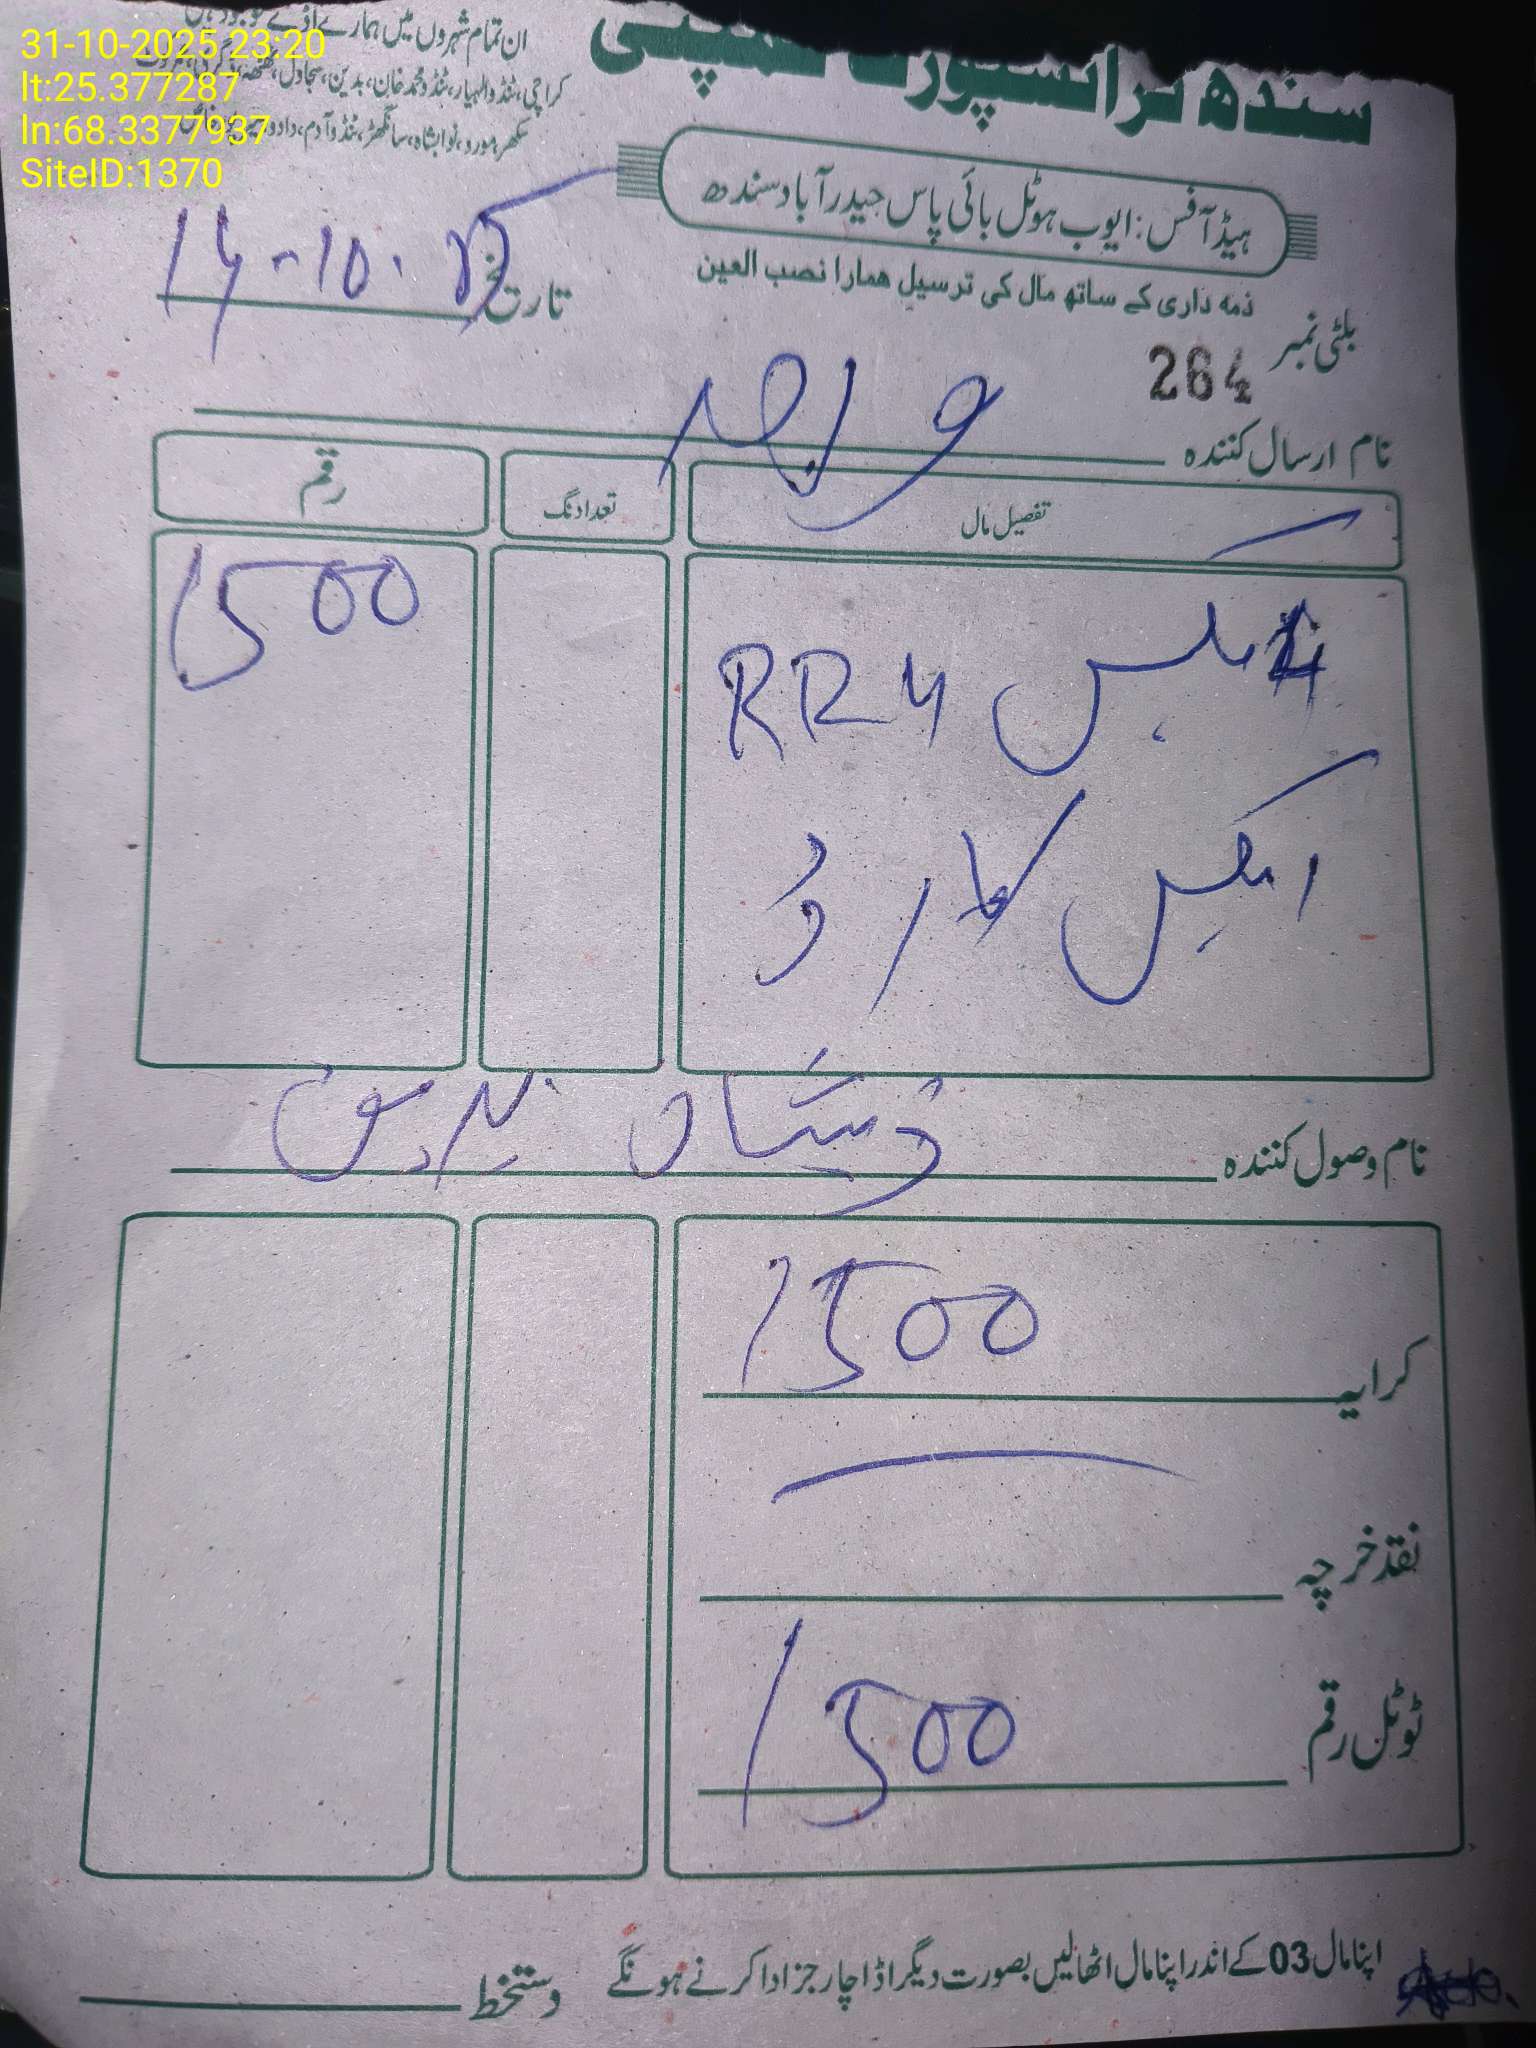 31-10-2025 23:20
lt:25.377287
ln:68.3377937
SiteID:1370
سندھ ٹرانسپورٹ کمپنی
ان تمام شہروں میں ہمارے اڈے موجود ہیں
کراچی، ٹنڈوالہیار، ٹنڈو محمد خان، بدین، سجاول، ٹھٹھہ،
سکھر، مورو، نوابشاہ، سانگھڑ، ٹنڈو آدم، دادو،
ہیڈ آفس: ایوب ہوٹل بائی پاس حیدرآباد سندھ
ذمہ داری کے ساتھ مال کی ترسیل ھمارا نصب العین
بلٹی نمبر 264
تاریخ 14-10.25
نام ارسال کنندہ
تفصیل مال تعداد نگ رقم
4 بکس RR4 1500
ا بکس کارڈ
نام وصول کنندہ ذیشان
کرایہ 1500
نقد خرچہ
ٹوٹل رقم 1500
اپنا مال 03 کے اندر اپنا مال اٹھالیں بصورت دیگر اڈا چارجز ادا کرنے ہونگے
دستخط